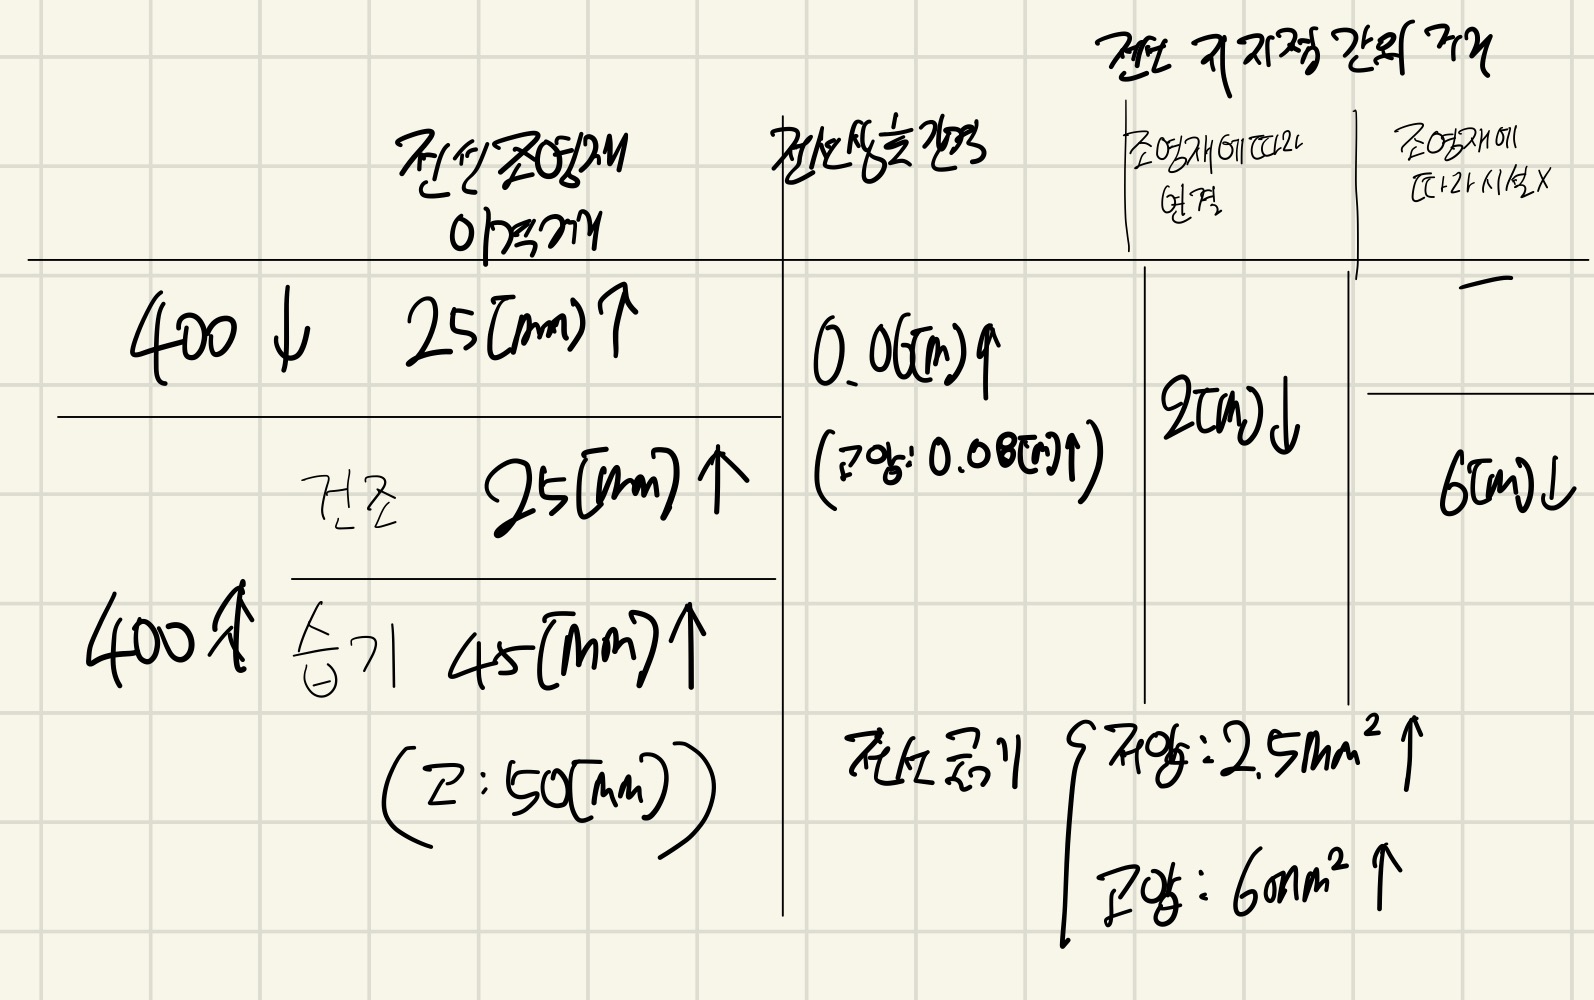 전선 지지점 간의 거리
전선 조영재 이격거리
전선 상호 간격
조영재에 따라 연결
조영재에 따라 시설 X
400 ↓ 25[mm] ↑
0.06[m] ↑
(고압: 0.08[m] ↑)
2[m] ↓
—
6[m] ↓
건조 25[mm] ↑
400 ↑
습기 45[mm] ↑
(고 : 50[mm])
전선 굵기
저압 : 2.5mm² ↑
고압 : 6mm² ↑